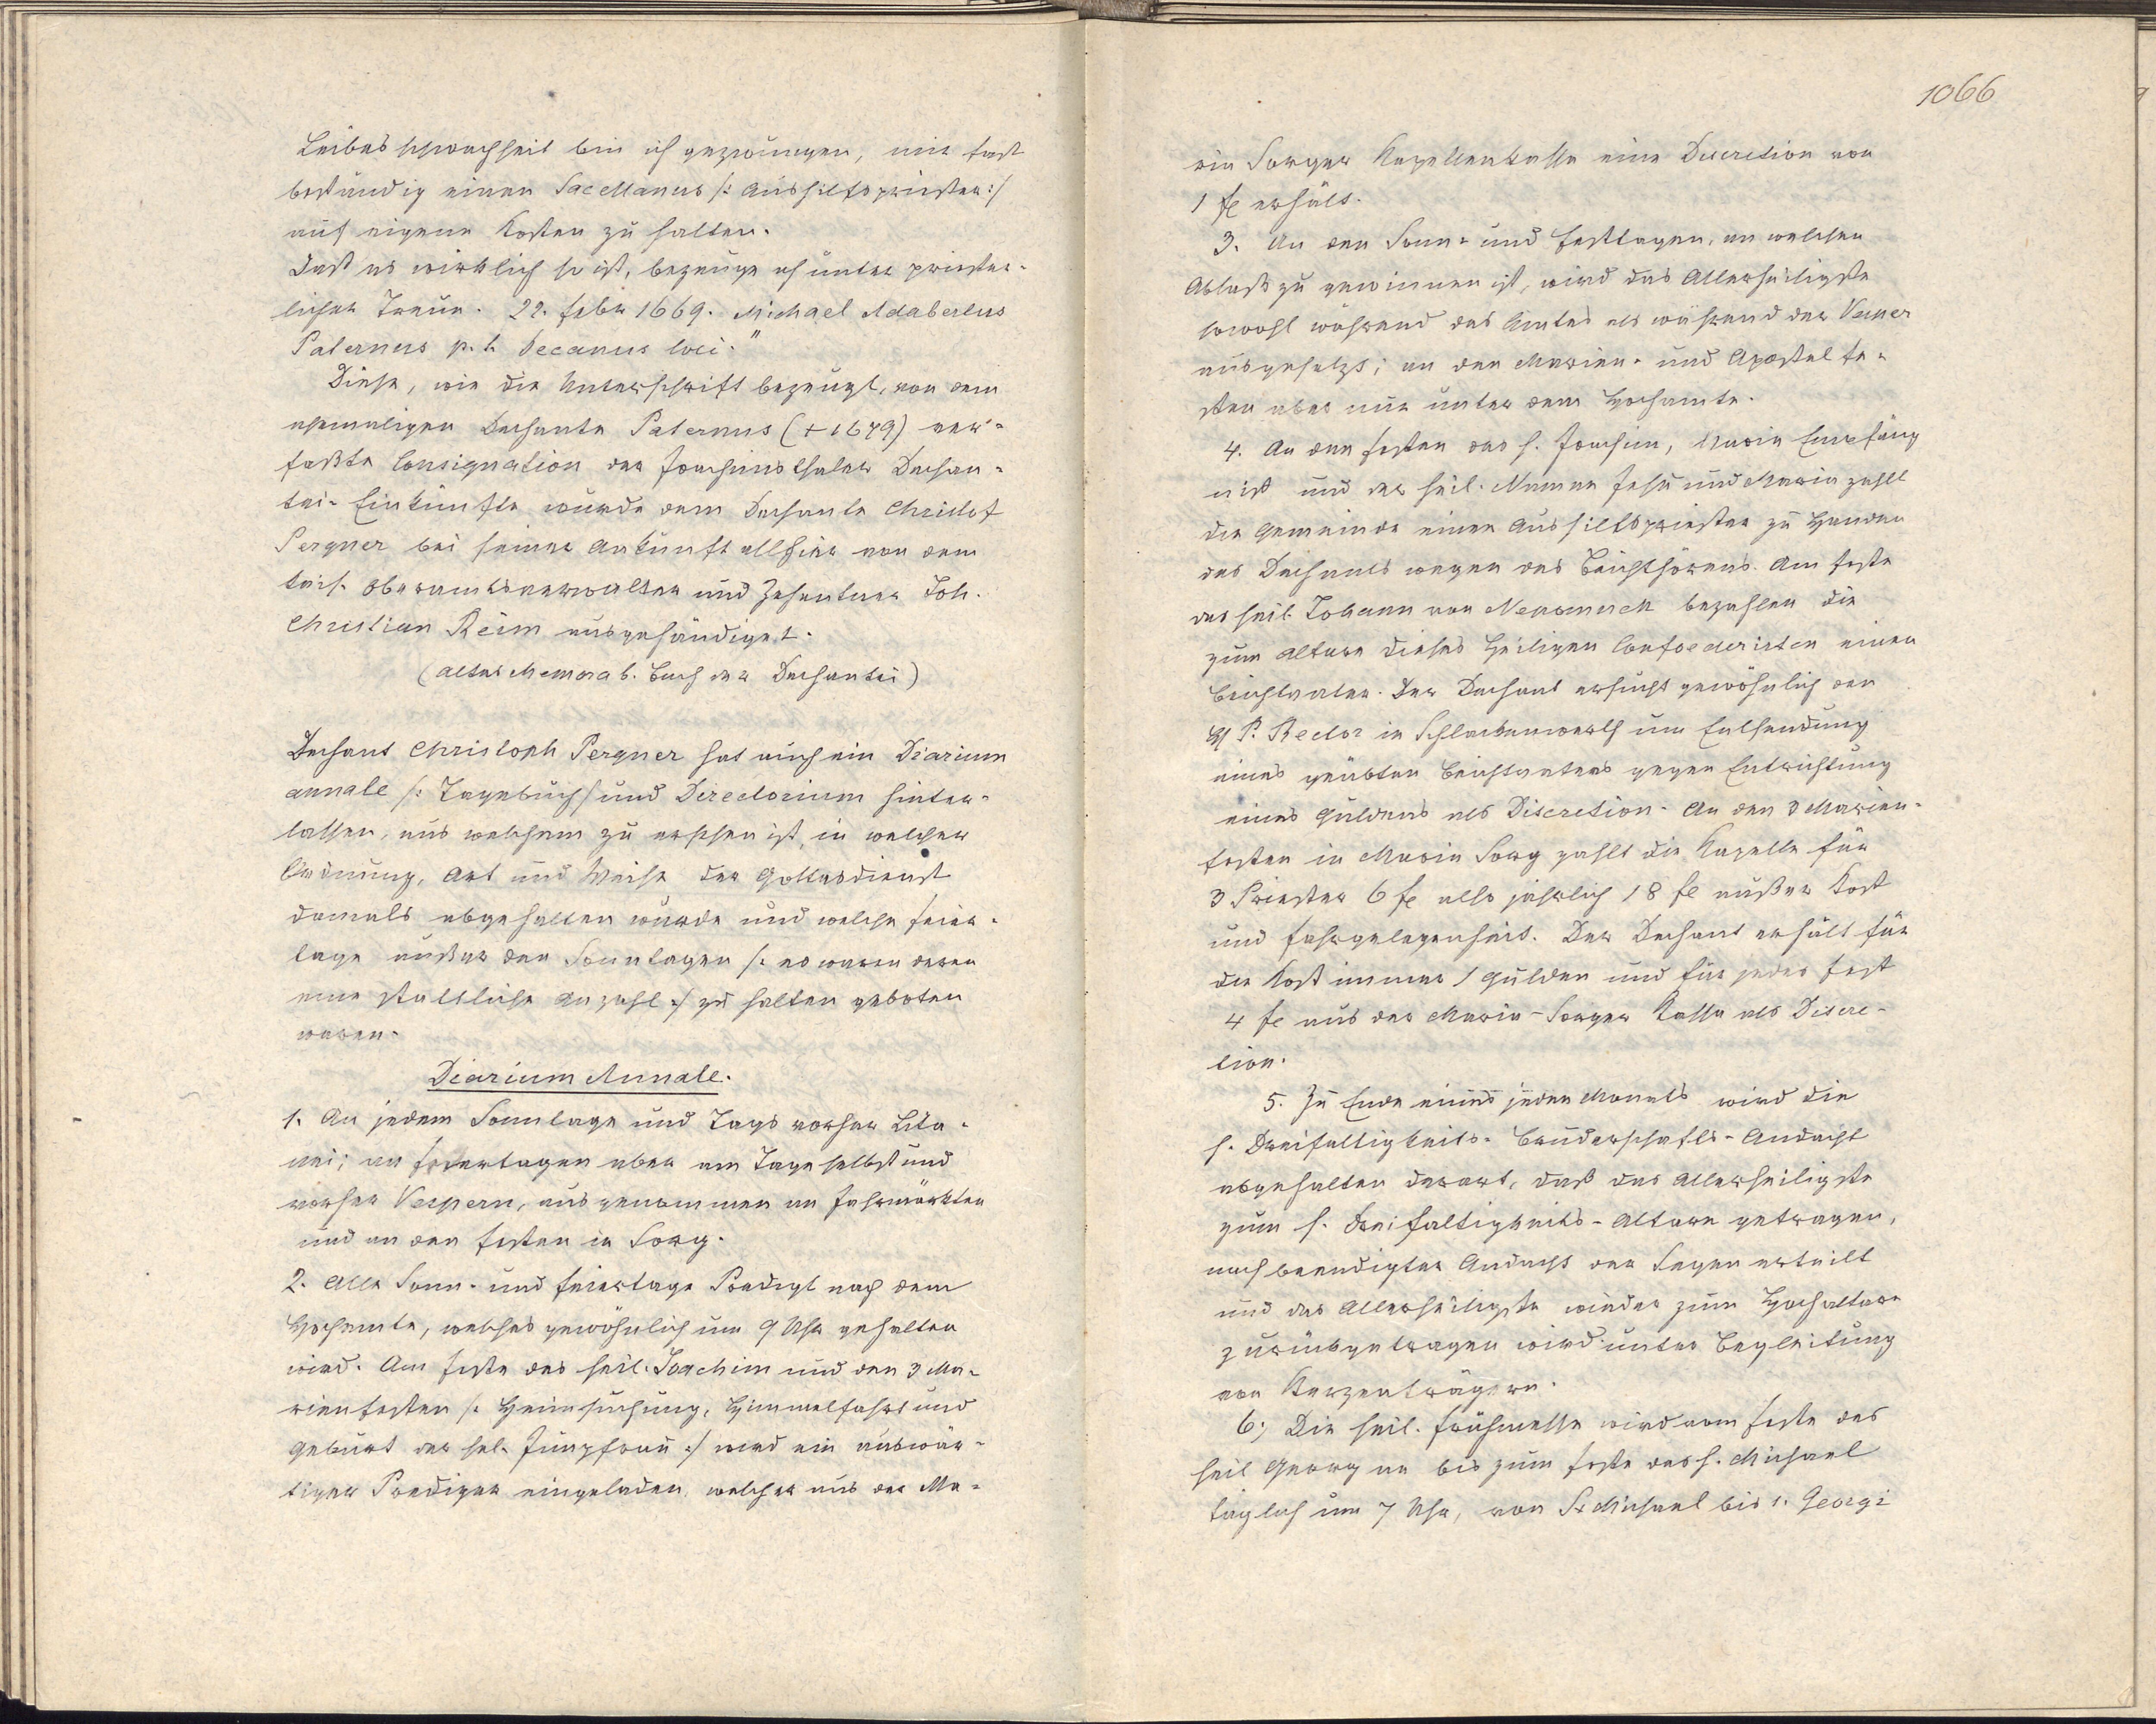 Leibesschwachheit bin ich gezwungen, mir fast
beständig einen Sacellanus /: Aushilfspriester :/
auf eigene Kosten zu halten.
Daß es wirklich so ist, bezeuge ich unter priester-
licher Treue. 22. Febr 1669. Michael Adalbertus
Paternus p. t. Decanus loci."
Diese, wie die Unterschrift bezeugt, von dem
ehemaligen Dechante Paternus (+ 1679) ver-
faßte Consignation der Joachimsthaler Dechan-
tei-Einkünfte wurde dem Dechante Christof
Pergner bei seiner Ankunft allhier von dem
kais. Oberamtsverwalter und Zehentner Joh.
Christian Reim ausgehändiget.
(Altes Memorab. Buch der Dechantei)
Dechant Christoph Pergner hat auch ein Diarium
annale /: Tagebuch / und Directorium hinter-
lassen, aus welchem zu ersehen ist, in welcher
Ordnung, Art und Weise der Gottesdienst
damals abgehalten wurde und welche Feier-
tage außer den Sonntagen /: es waren deren
eine stattliche Anzahl :/ zu halten geboten
waren.
Diarium Annale.
1. An jedem Sonntage und Tags vorher Lita-
nei; an Feiertagen aber am Tage selbst und
vorher Vespern, ausgenommen an Jahrmärkten
und an den Festen in Sorg.
2. Alle Sonn- und Feiertage Predigt nach dem
Hochamte, welches gewöhnlich um 9 Uhr gehalten
wird. Am Feste des heil. Joachim und den 3 Ma-
rienfesten /: Heimsuchung, Himmelfahrt und
Geburt der sel. Jungfrau :/ wird ein auswär-
tiger Prediger eingeladen, welcher aus der Ma-
1066
ria Sorger Kapellenkasse eine Discretion von
1 fl erhält.
3. An den Sonn- und Festtagen, an welchen
Ablaß zu gewinnen ist, wird das Allerheiligste
sowohl während des Amtes als während der Vesper
ausgesetzt; an den Marien- und Apostelfe-
sten aber nur unter dem Hochamte.
4. An den Festen des h. Joachim, Maria Empfäng
niß und der heil. Namen Jesu und Maria zahlt
die Gemeinde einen Aushilfspriester zu Handen
des Dechants wegen des Beichthörens. Am Feste
des heil. Johann von Nepomuck bezahlen die
zum Altare dieses Heiligen Confoederirten einen
Beichtvater. Der Dechant ersucht gewöhnlich den
H P. Rector in Schlackenwerth um Entsendung
eines geübten Beichtvaters gegen Entrichtung
eines Guldens als Discretion. An den 3 Marien-
festen in Maria Sorg zahlt die Kapelle für
3 Priester 6 fl also jährlich 18 fl außer Kost
und Fahrgelegenheit. Der Dechant erhält für
die Kost immer 1 Gulden und für jedes Fest
4 fl aus der Maria-Sorger Kassa als Discre-
tion.
5. Zu Ende eines jeden Monats wird die
h. Dreifaltigkeits-Bruderschafts-Andacht
abgehalten derart, daß das Allerheiligste
zum h. Dreifaltigkeits-Altare getragen,
nach beendigter Andacht der Segen erteilt
und das Allerheiligste wieder zum Hochaltare
zurückgetragen wird unter Begleitung
von Kerzenträgern.
6; Die heil. Frühmesse wird vom Feste des
heil Georg an bis zum Feste des h. Michael
täglich um 7 Uhr, von St Michael bis s. Georgi